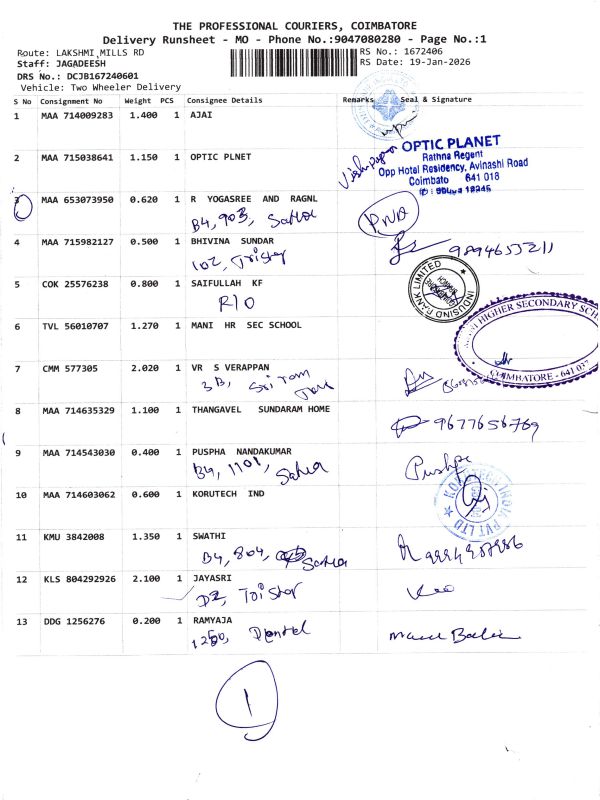 THE PROFESSIONAL COURIERS, COIMBATORE
Delivery Runsheet - MO - Phone No.:9047080280 - Page No.:1
Route: LAKSHMI MILLS RD
RS No.: 1672406
Staff: JAGADEESH
RS Date: 19-Jan-2026
DRS No.: DCJB167240601
Vehicle: Two Wheeler Delivery
S No Consignment No Weight PCS Consignee Details Remarks Seal & Signature
1 MAA 714009283 1.400 1 AJAI
2 MAA 715038641 1.150 1 OPTIC PLNET
OPTIC PLANET
Rathna Regent
Opp Hotel Residency, Avinashi Road
Coimbato 641 018
3 MAA 653073950 0.620 1 R YOGASREE AND RAGNL
B4, 903, Saha
4 MAA 715982127 0.500 1 BHIVINA SUNDAR
102, Tristar
9894653211
5 COK 25576238 0.800 1 SAIFULLAH KF
R/O
INDUSIND BANK LIMITED
6 TVL 56010707 1.270 1 MANI HR SEC SCHOOL
HIGHER SECONDARY SCH
COIMBATORE - 641 037
7 CMM 577305 2.020 1 VR S VERAPPAN
3B, Sri Ram
8 MAA 714635329 1.100 1 THANGAVEL SUNDARAM HOME
9677656769
9 MAA 714543030 0.400 1 PUSPHA NANDAKUMAR
B4, 1101, Saha
Pushpa
10 MAA 714603062 0.600 1 KORUTECH IND
11 KMU 3842008 1.350 1 SWATHI
B4, 804, Saha
12 KLS 804292926 2.100 1 JAYASRI
D2, Tristar
13 DDG 1256276 0.200 1 RAMYAJA
1